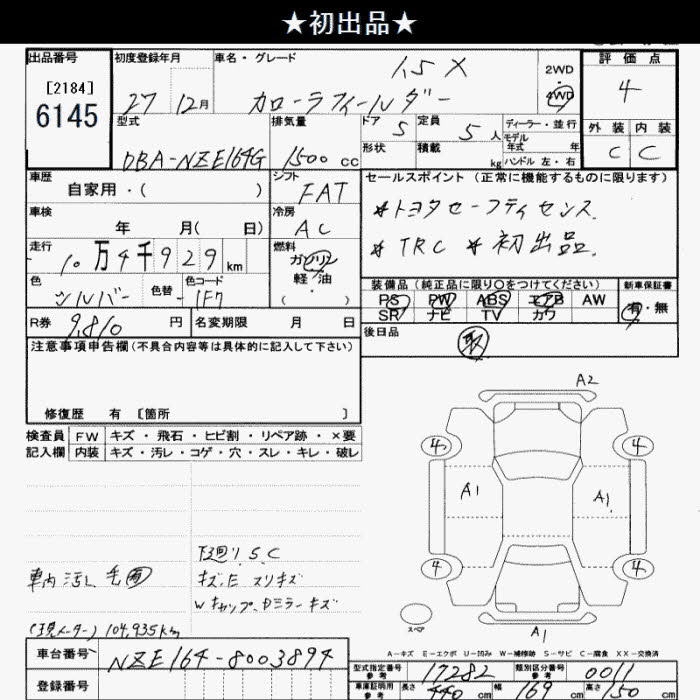 ★初出品★
出品番号
[2184]
6145
初度登録年月
27 12月
車名・グレード
1.5 X
カローラフィールダー
2WD
・
4WD
評価点
4
外装 内装
C C
型式
DBA-NZE164G
排気量
1500 cc
ドア 5
定員 5 人
形状
積載 kg
ディーラー・並行
モデル年式 年
ハンドル 左・右
車歴
自家用・( )
シフト
FAT
セールスポイント (正常に機能するものに限ります)
*トヨタセーフティセンス.
*TRC *初出品.
車検
年 月( 日)
冷房
AC
走行
10万4千929km
燃料
ガソリン
軽・油
・
( )
色
シルバー
色替
色コード
1F7
装備品 (純正品に限り○をつけてください)
PS PW ABS エアB AW
SR ナビ TV カワ
新車保証書
有・無
R券 9,810 円
名変期限 月 日
後日品
取
注意事項申告欄(不具合内容等は具体的に記入して下さい)
修復歴 有 [箇所 ]
検査員
記入欄
FW キズ・飛石・ヒビ割・リペア跡・×要
内装 キズ・汚レ・コゲ・穴・スレ・キレ・破レ
A2
4 4
A1 A1
4 4
スペア
A1
下廻り S.C
車内汚レ
キズE スリキズ
Wキャップ.Dミラーキズ
(現メーター) 104,935km
A-キズ E-エクボ U-凹み W-補修跡 S-サビ C-腐食 XX-交換済
車台番号 NZE164-8003894
登録番号
型式指定番号参考 17282
類別区分番号参考 0011
車庫証明用参考 長さ 440 cm 幅 169 cm 高さ 150 cm